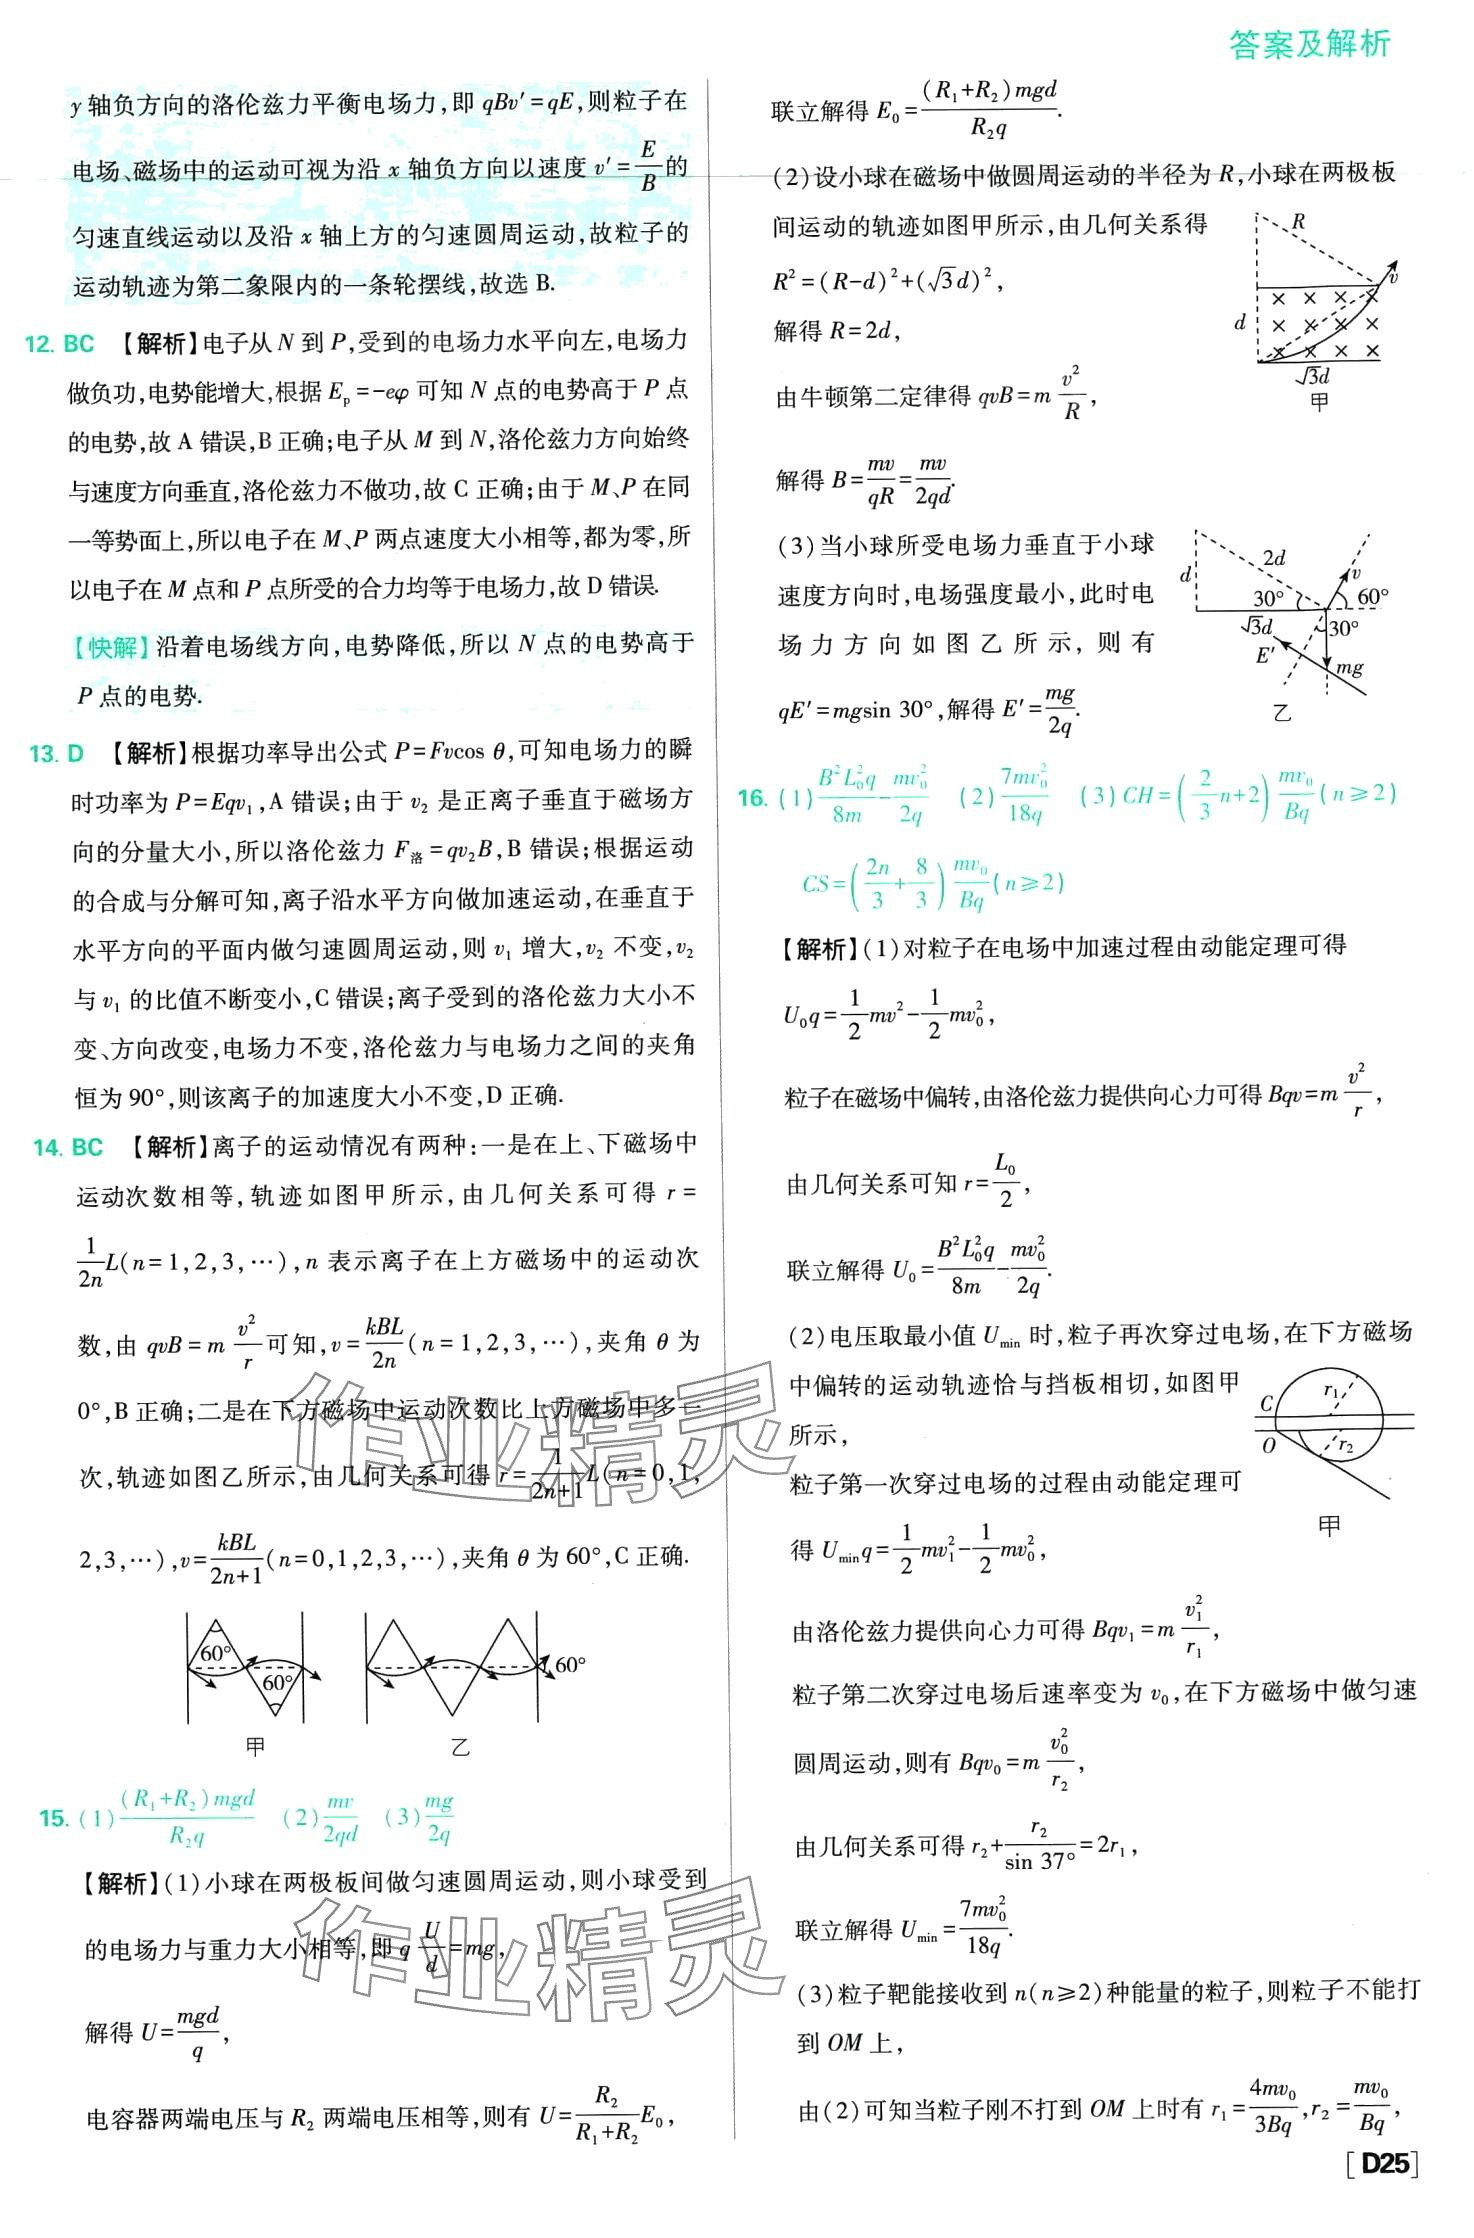 答案及解析
y 轴负方向的洛伦兹力平衡电场力,即 qBv'=qE,则粒子在
电场、磁场中的运动可视为沿 x 轴负方向以速度 v'=E/B的
匀速直线运动以及沿 x 轴上方的匀速圆周运动,故粒子的
运动轨迹为第二象限内的一条轮摆线,故选 B.
12. BC 【解析】电子从 N 到 P,受到的电场力水平向左,电场力
做负功,电势能增大,根据 Eₚ=-eφ 可知 N 点的电势高于 P 点
的电势,故 A 错误,B 正确;电子从 M 到 N,洛伦兹力方向始终
与速度方向垂直,洛伦兹力不做功,故 C 正确;由于 M、P 在同
一等势面上,所以电子在 M、P 两点速度大小相等,都为零,所
以电子在 M 点和 P 点所受的合力均等于电场力,故 D 错误.
【快解】沿着电场线方向,电势降低,所以 N 点的电势高于
P 点的电势.
13. D 【解析】根据功率导出公式 P=Fvcos θ,可知电场力的瞬
时功率为 P=Eqv₁,A 错误;由于 v₂ 是正离子垂直于磁场方
向的分量大小,所以洛伦兹力 F洛=qv₂B,B 错误;根据运动
的合成与分解可知,离子沿水平方向做加速运动,在垂直于
水平方向的平面内做匀速圆周运动,则 v₁ 增大,v₂ 不变,v₂
与 v₁ 的比值不断变小,C 错误;离子受到的洛伦兹力大小不
变、方向改变,电场力不变,洛伦兹力与电场力之间的夹角
恒为 90°,则该离子的加速度大小不变,D 正确.
14. BC 【解析】离子的运动情况有两种:一是在上、下磁场中
运动次数相等,轨迹如图甲所示,由几何关系可得 r=
1/2n L(n=1,2,3,…),n 表示离子在上方磁场中的运动次
数,由 qvB=m v²/r 可知,v=kBL/2n(n=1,2,3,…),夹角 θ 为
0°,B 正确;二是在下方磁场中运动次数比上方磁场中多一
次,轨迹如图乙所示,由几何关系可得 r=1/(2n+1) L(n=0,1,
2,3,…),v=kBL/(2n+1)(n=0,1,2,3,…),夹角 θ 为 60°,C 正确.
60° 60° 60°
甲 乙
15. (1)(R₁+R₂)mgd/R₂q (2)mv/2qd (3)mg/2q
【解析】(1)小球在两极板间做匀速圆周运动,则小球受到
的电场力与重力大小相等,即 q U/d=mg,
解得 U=mgd/q,
电容器两端电压与 R₂ 两端电压相等,则有 U=R₂/(R₁+R₂) E₀,
联立解得 E₀=(R₁+R₂)mgd/R₂q.
(2)设小球在磁场中做圆周运动的半径为 R,小球在两极板
间运动的轨迹如图甲所示,由几何关系得
R²=(R-d)²+(√3d)²,
解得 R=2d,
由牛顿第二定律得 qvB=m v²/R,
解得 B=mv/qR=mv/2qd.
R v d √3d
甲
(3)当小球所受电场力垂直于小球
速度方向时,电场强度最小,此时电
场力方向如图乙所示,则有
qE'=mgsin 30°,解得 E'=mg/2q.
d 2d v 30° 60° √3d 30° E' mg
乙
16. (1)B²L₀²q/8m-mv₀²/2q (2)7mv₀²/18q (3)CH=(2/3 n+2)mv₀/Bq(n≥2)
CS=(2n/3+8/3)mv₀/Bq(n≥2)
【解析】(1)对粒子在电场中加速过程由动能定理可得
U₀q=1/2 mv²-1/2 mv₀²,
粒子在磁场中偏转,由洛伦兹力提供向心力可得 Bqv=m v²/r,
由几何关系可知 r=L₀/2,
联立解得 U₀=B²L₀²q/8m-mv₀²/2q.
(2)电压取最小值 Umin 时,粒子再次穿过电场,在下方磁场
中偏转的运动轨迹恰与挡板相切,如图甲
所示,
粒子第一次穿过电场的过程由动能定理可
得 Uminq=1/2 mv₁²-1/2 mv₀²,
C O r₁ r₂
甲
由洛伦兹力提供向心力可得 Bqv₁=m v₁²/r₁,
粒子第二次穿过电场后速率变为 v₀,在下方磁场中做匀速
圆周运动,则有 Bqv₀=m v₀²/r₂,
由几何关系可得 r₂+r₂/sin 37°=2r₁,
联立解得 Umin=7mv₀²/18q.
(3)粒子靶能接收到 n(n≥2)种能量的粒子,则粒子不能打
到 OM 上,
由(2)可知当粒子刚不打到 OM 上时有 r₁=4mv₀/3Bq,r₂=mv₀/Bq,
[D25]
作业精灵
作业精灵